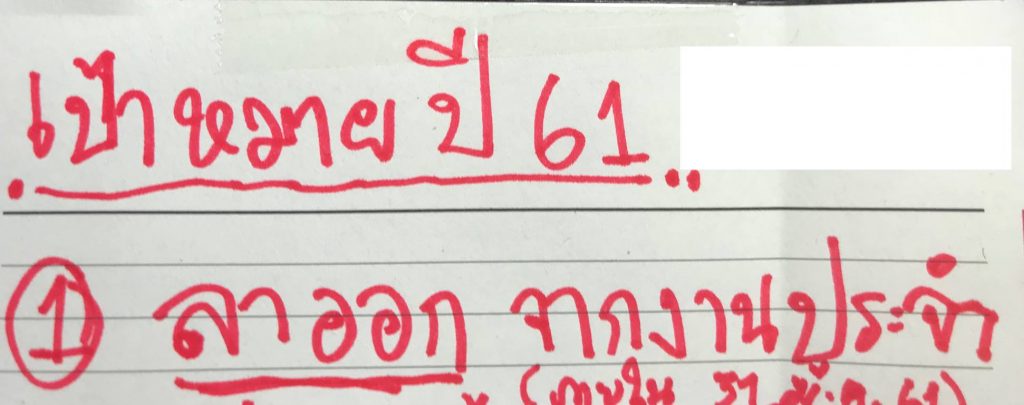 เป้าหมาย ปี 61
① ลาออก จากงานประจำ
(ภายใน 31